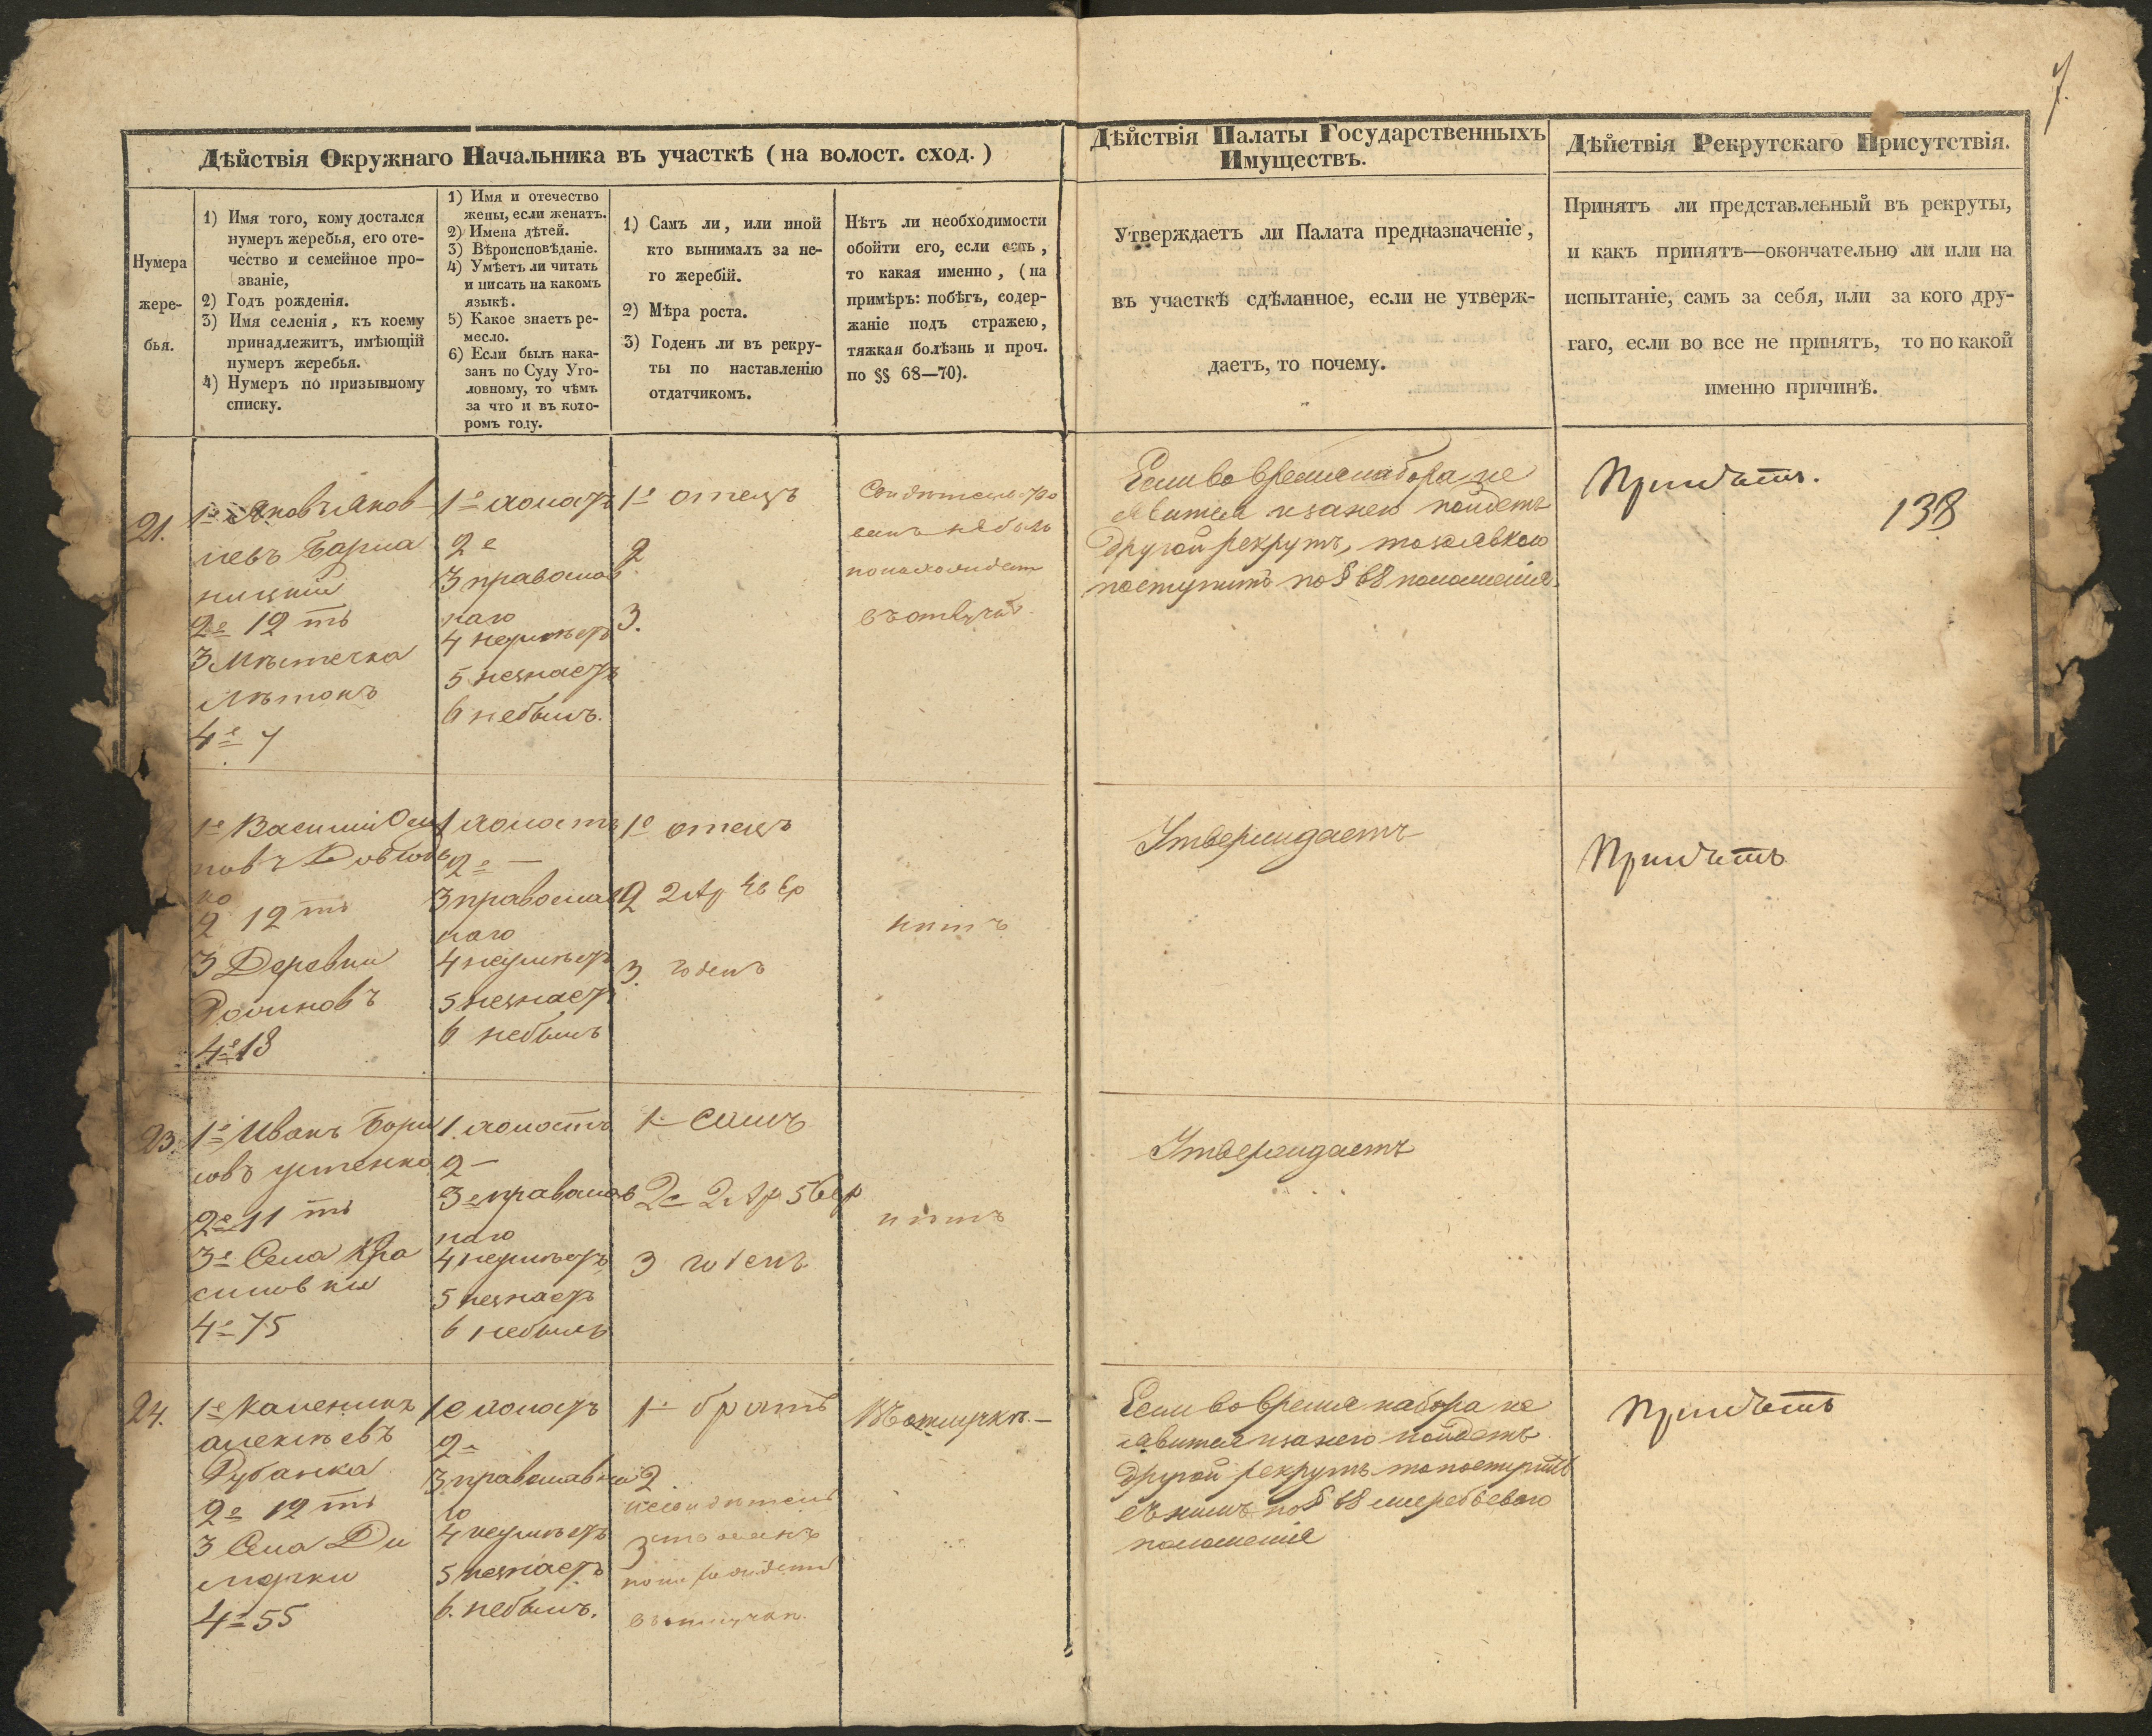 7.
Дѣйствія Окружнаго Начальника въ участкѣ (на волост. сход.)
Дѣйствія Палаты Государственныхъ
Имуществъ.
Дѣйствія Рекрутскаго Присутствія.
Нумера
жере-
бья.
1) Имя того, кому достался
нумеръ жеребья, его оте-
чество и семейное про-
званіе,
2) Годъ рожденія.
3) Имя селенія, къ коему
принадлежитъ, имѣющій
нумеръ жеребья.
4) Нумеръ по призывному
списку.
1) Имя и отечество
жены, если женатъ.
2) Имена дѣтей.
3) Вѣроисповѣданіе.
4) Умѣетъ ли читать
и писать на какомъ
языкѣ.
5) Какое знаетъ ре-
месло.
6) Если былъ нака-
занъ по Суду Уго-
ловному, то чѣмъ
за что и въ кото-
ромъ году.
1) Самъ ли, или иной
кто вынималъ за не-
го жеребій.
2) Мѣра роста.
3) Годенъ ли въ рекру-
ты по наставленію
отдатчикомъ.
Нѣтъ ли необходимости
обойти его, если есть,
то какая именно, (на
примѣръ: побѣгъ, содер-
жаніе подъ стражею,
тяжкая болѣзнь и проч.
по §§ 68—70).
Утверждаетъ ли Палата предназначеніе,
въ участкѣ сдѣланное, если не утверж-
даетъ, то почему.
Принятъ ли представленный въ рекруты,
и какъ принятъ—окончательно ли или на
испытаніе, самъ за себя, или за кого дру-
гаго, если во все не принятъ, то по какой
именно причинѣ.
21.
1е Яковъ Яков
левъ
2е 12 ть
3 Мѣстечка
4е 7
1е холостъ
2е
3 православ
наго
4 неумѣетъ
5 незнаетъ
6 небылъ.
1е отецъ
2
3.
небылъ
Если во время набора не
явится и за него пойдетъ
другой рекрутъ,
поступить по § 68 положенія.
138
1е Василий Оси
повъ
ко
2 12 ть
3 Деревни
4е 18
1 холостъ
2е —
3 православ
наго
4 неумѣетъ
5 незнаетъ
6 небылъ
1е отецъ
2 2 Ар
3. годенъ
нѣтъ
Утверждаетъ
23.
1е Иванъ Бори
совъ Устенко
2е 11 ть
3е Села Кра
силовки
4е 75
1. холостъ
2 —
3е православ
наго
4 неумѣетъ
5 незнаетъ
6 небылъ
1 самъ
2е 2 Ар 5 вер
3 годенъ
нѣтъ
Утверждаетъ
24.
1е Каленикъ
Алексѣевъ
Рубанка
2е 12 ть
3 Села Ди
мерки
4е 55
1е холостъ
2е
3 православна
го
4 неумѣетъ
5 незнаетъ
6. небылъ.
1 братъ
2
3
Въ отлучкѣ. —
Если во время набора не
явится и за него пойдетъ
другой рекрутъ
съ нимъ по § 68 жеребьеваго
положенія